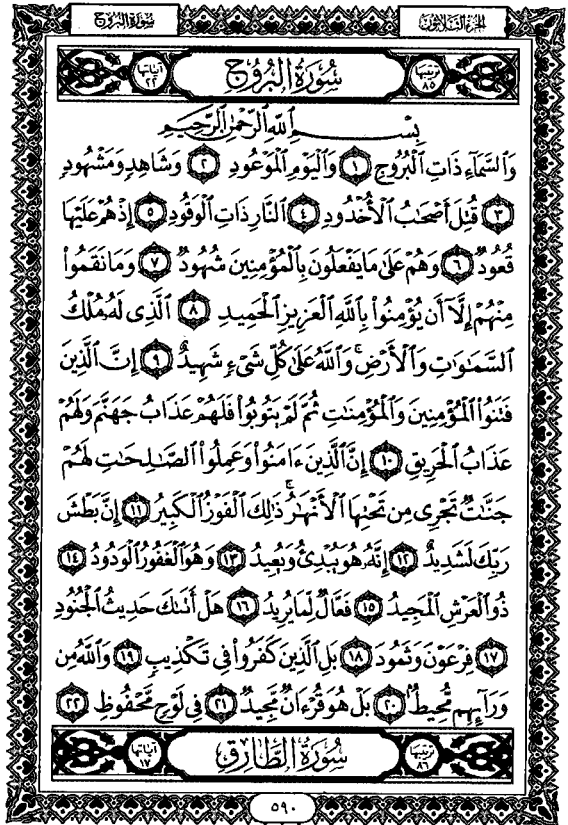 الجزء الثلاثون
سورة البروج
ترتيبها ٨٥
سُورَةُ الْبُرُوجِ
آياتها ٢٢
بِسْمِ اللَّهِ الرَّحْمَٰنِ الرَّحِيمِ
وَالسَّمَآءِ ذَاتِ الْبُرُوجِ ١ وَالْيَوْمِ الْمَوْعُودِ ٢ وَشَاهِدٍ وَمَشْهُودٍ
٣ قُتِلَ أَصْحَٰبُ الْأُخْدُودِ ٤ النَّارِ ذَاتِ الْوَقُودِ ٥ إِذْ هُمْ عَلَيْهَا
قُعُودٌ ٦ وَهُمْ عَلَىٰ مَا يَفْعَلُونَ بِالْمُؤْمِنِينَ شُهُودٌ ٧ وَمَا نَقَمُوا۟
مِنْهُمْ إِلَّآ أَن يُؤْمِنُوا۟ بِاللَّهِ الْعَزِيزِ الْحَمِيدِ ٨ الَّذِى لَهُ مُلْكُ
السَّمَٰوَٰتِ وَالْأَرْضِ ۚ وَاللَّهُ عَلَىٰ كُلِّ شَىْءٍ شَهِيدٌ ٩ إِنَّ الَّذِينَ
فَتَنُوا۟ الْمُؤْمِنِينَ وَالْمُؤْمِنَٰتِ ثُمَّ لَمْ يَتُوبُوا۟ فَلَهُمْ عَذَابُ جَهَنَّمَ وَلَهُمْ
عَذَابُ الْحَرِيقِ ١٠ إِنَّ الَّذِينَ ءَامَنُوا۟ وَعَمِلُوا۟ الصَّٰلِحَٰتِ لَهُمْ
جَنَّٰتٌ تَجْرِى مِن تَحْتِهَا الْأَنْهَٰرُ ۚ ذَٰلِكَ الْفَوْزُ الْكَبِيرُ ١١ إِنَّ بَطْشَ
رَبِّكَ لَشَدِيدٌ ١٢ إِنَّهُ هُوَ يُبْدِئُ وَيُعِيدُ ١٣ وَهُوَ الْغَفُورُ الْوَدُودُ ١٤
ذُو الْعَرْشِ الْمَجِيدُ ١٥ فَعَّالٌ لِّمَا يُرِيدُ ١٦ هَلْ أَتَىٰكَ حَدِيثُ الْجُنُودِ
١٧ فِرْعَوْنَ وَثَمُودَ ١٨ بَلِ الَّذِينَ كَفَرُوا۟ فِى تَكْذِيبٍ ١٩ وَاللَّهُ مِن
وَرَآئِهِم مُّحِيطٌۢ ٢٠ بَلْ هُوَ قُرْءَانٌ مَّجِيدٌ ٢١ فِى لَوْحٍ مَّحْفُوظٍۭ ٢٢
ترتيبها ٨٦
سُورَةُ الطَّارِقِ
آياتها ١٧
٥٩٠